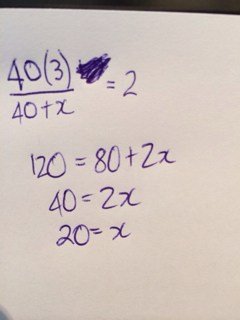 40(3)
40+x = 2
120 = 80+2x
40 = 2x
20 = x